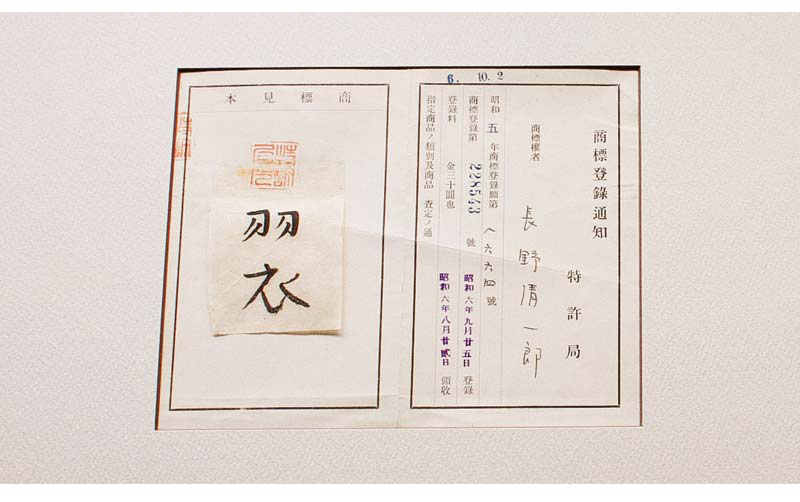 6. 10. 2
商標登錄通知
特許局
商標權者 長野清一郎
昭和五年商標登錄願第八六六四號
商標登錄第228543號 昭和六年九月廿五日登錄
登錄料 金三十圓也 昭和六年八月廿貳日領收
指定商品ノ類別及商品 査定ノ通
本見標商
羽衣